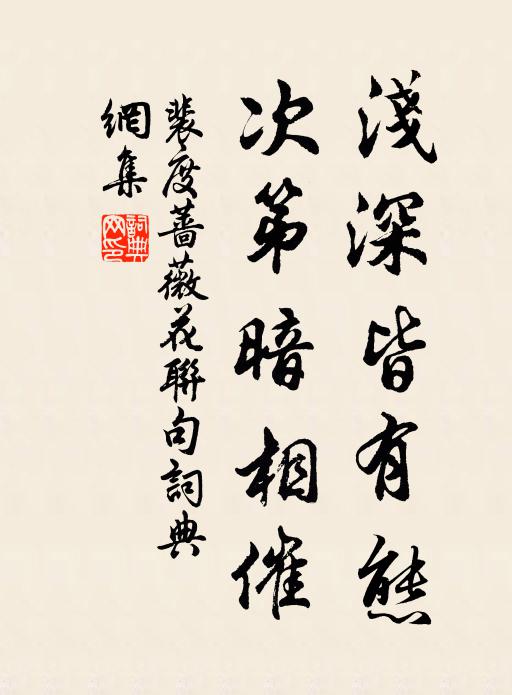 淺深皆有態
次第暗相催
裴度薔薇花聯句詞典
網集
詞典網印